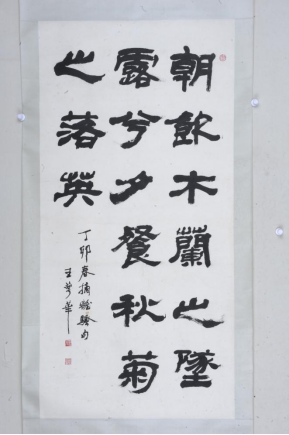 朝飲木蘭之墜
露兮夕餐秋菊
之落英
丁卯春摘離騷句